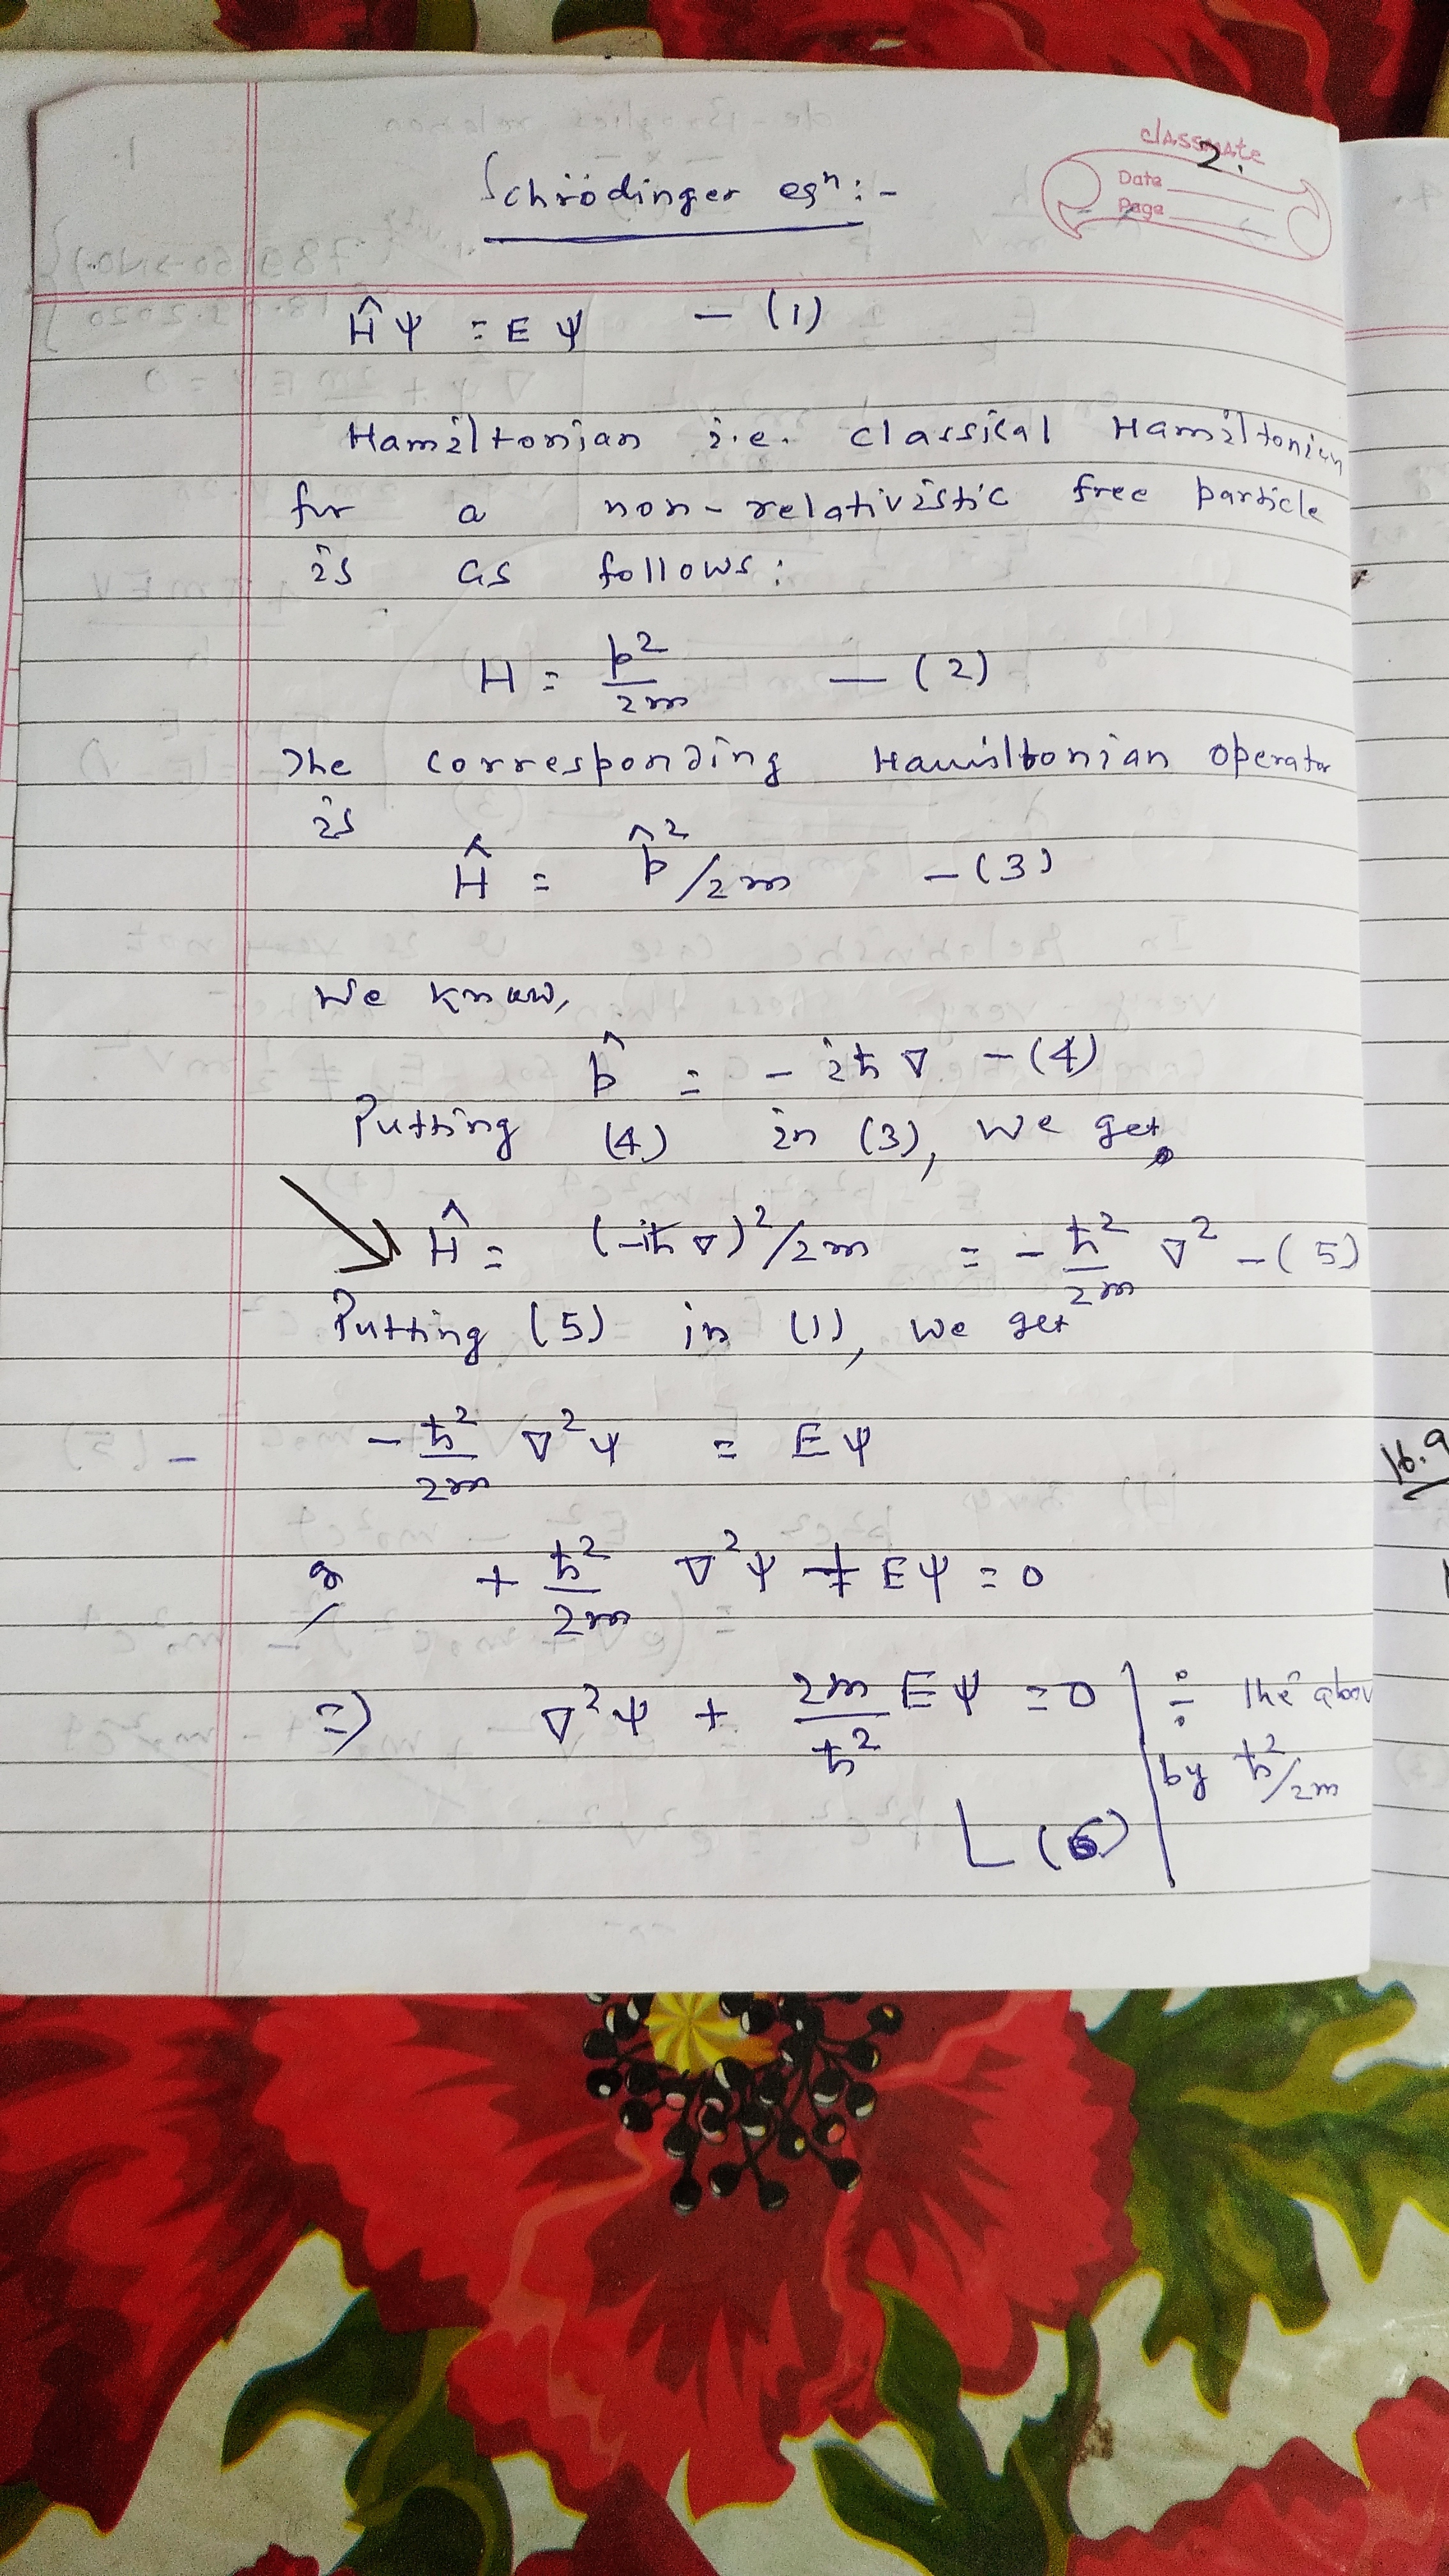 classmate
2.
Date
Page
Schrödinger eqⁿ:-
Ĥ ψ = E ψ — (1)
Hamiltonian i.e. classical Hamiltonian
for a non-relativistic free particle
is as follows:
H = p²/2m — (2)
The corresponding Hamiltonian operator
is
Ĥ = p̂²/2m — (3)
We know,
p̂ = - iħ ∇ — (4)
Putting (4) in (3), we get
Ĥ = (-iħ ∇)²/2m = - ħ²/2m ∇² — (5)
Putting (5) in (1), we get
- ħ²/2m ∇²ψ = E ψ
or + ħ²/2m ∇²ψ + E ψ = 0
=) ∇²ψ + 2m/ħ² E ψ = 0 | ÷ the above
by ħ²/2m
L (6)
16.9